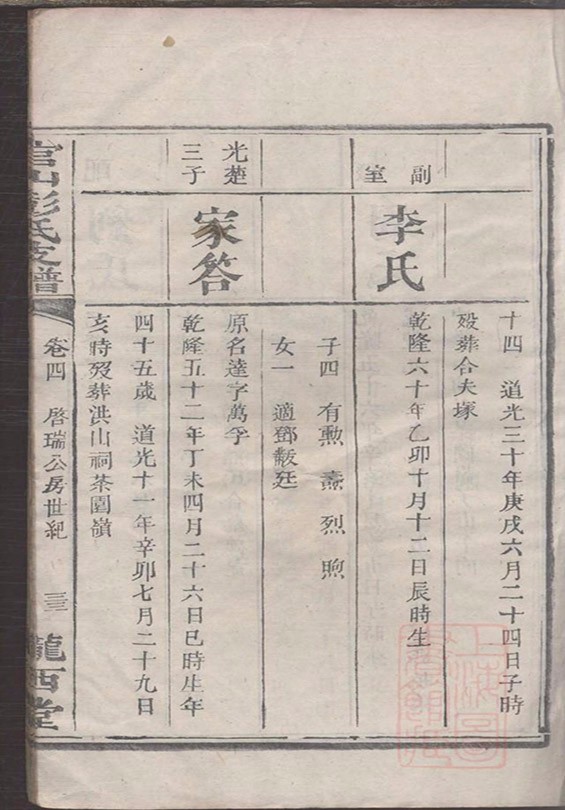 十四 道光三十年庚戌六月二十四日子時
歿葬合夫塚
副室
李氏
乾隆六十年乙卯十月十二日辰時生
子四 有勲 燾 烈 煦
女一 適鄧黻廷
光楚三子
家答
原名達字萬孚
乾隆五十二年丁未四月二十六日巳時生年
四十五歲 道光十一年辛卯七月二十九日
亥時歿葬洪山祠茶園嶺
官山彭氏支譜
卷四 啓瑞公房世紀
三三
隴西堂